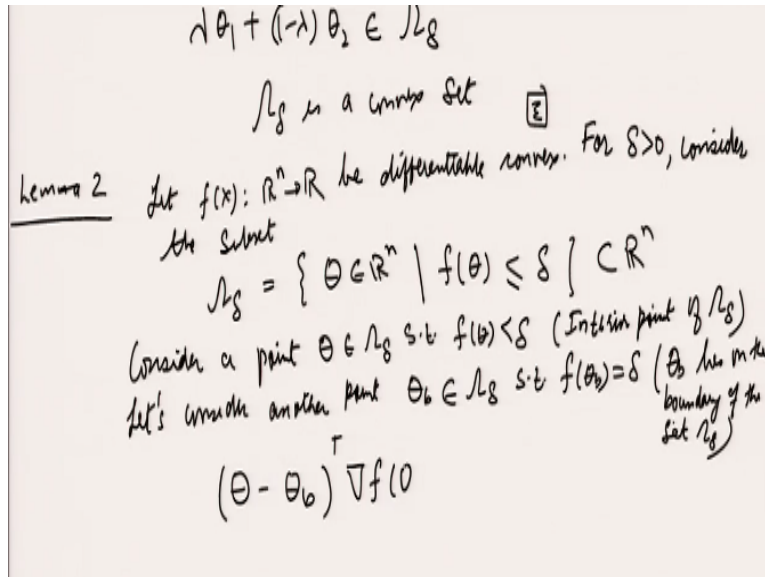 λθ₁ + (1-λ) θ₂ ∈ Λ_δ
Λ_δ is a convex set
Lemma 2 Let f(x): ℝⁿ→ℝ be differentiable convex. For δ>0, consider
the subset
Λ_δ = { θ ∈ ℝⁿ | f(θ) ≤ δ } ⊂ ℝⁿ
Consider a point θ ∈ Λ_δ s.t. f(θ)<δ (Interior point of Λ_δ)
Let's consider another point θ_b ∈ Λ_δ s.t f(θ_b)=δ (θ_b lies on the
boundary of the
set Λ_δ)
(θ - θ_b)ᵀ ∇f(θ